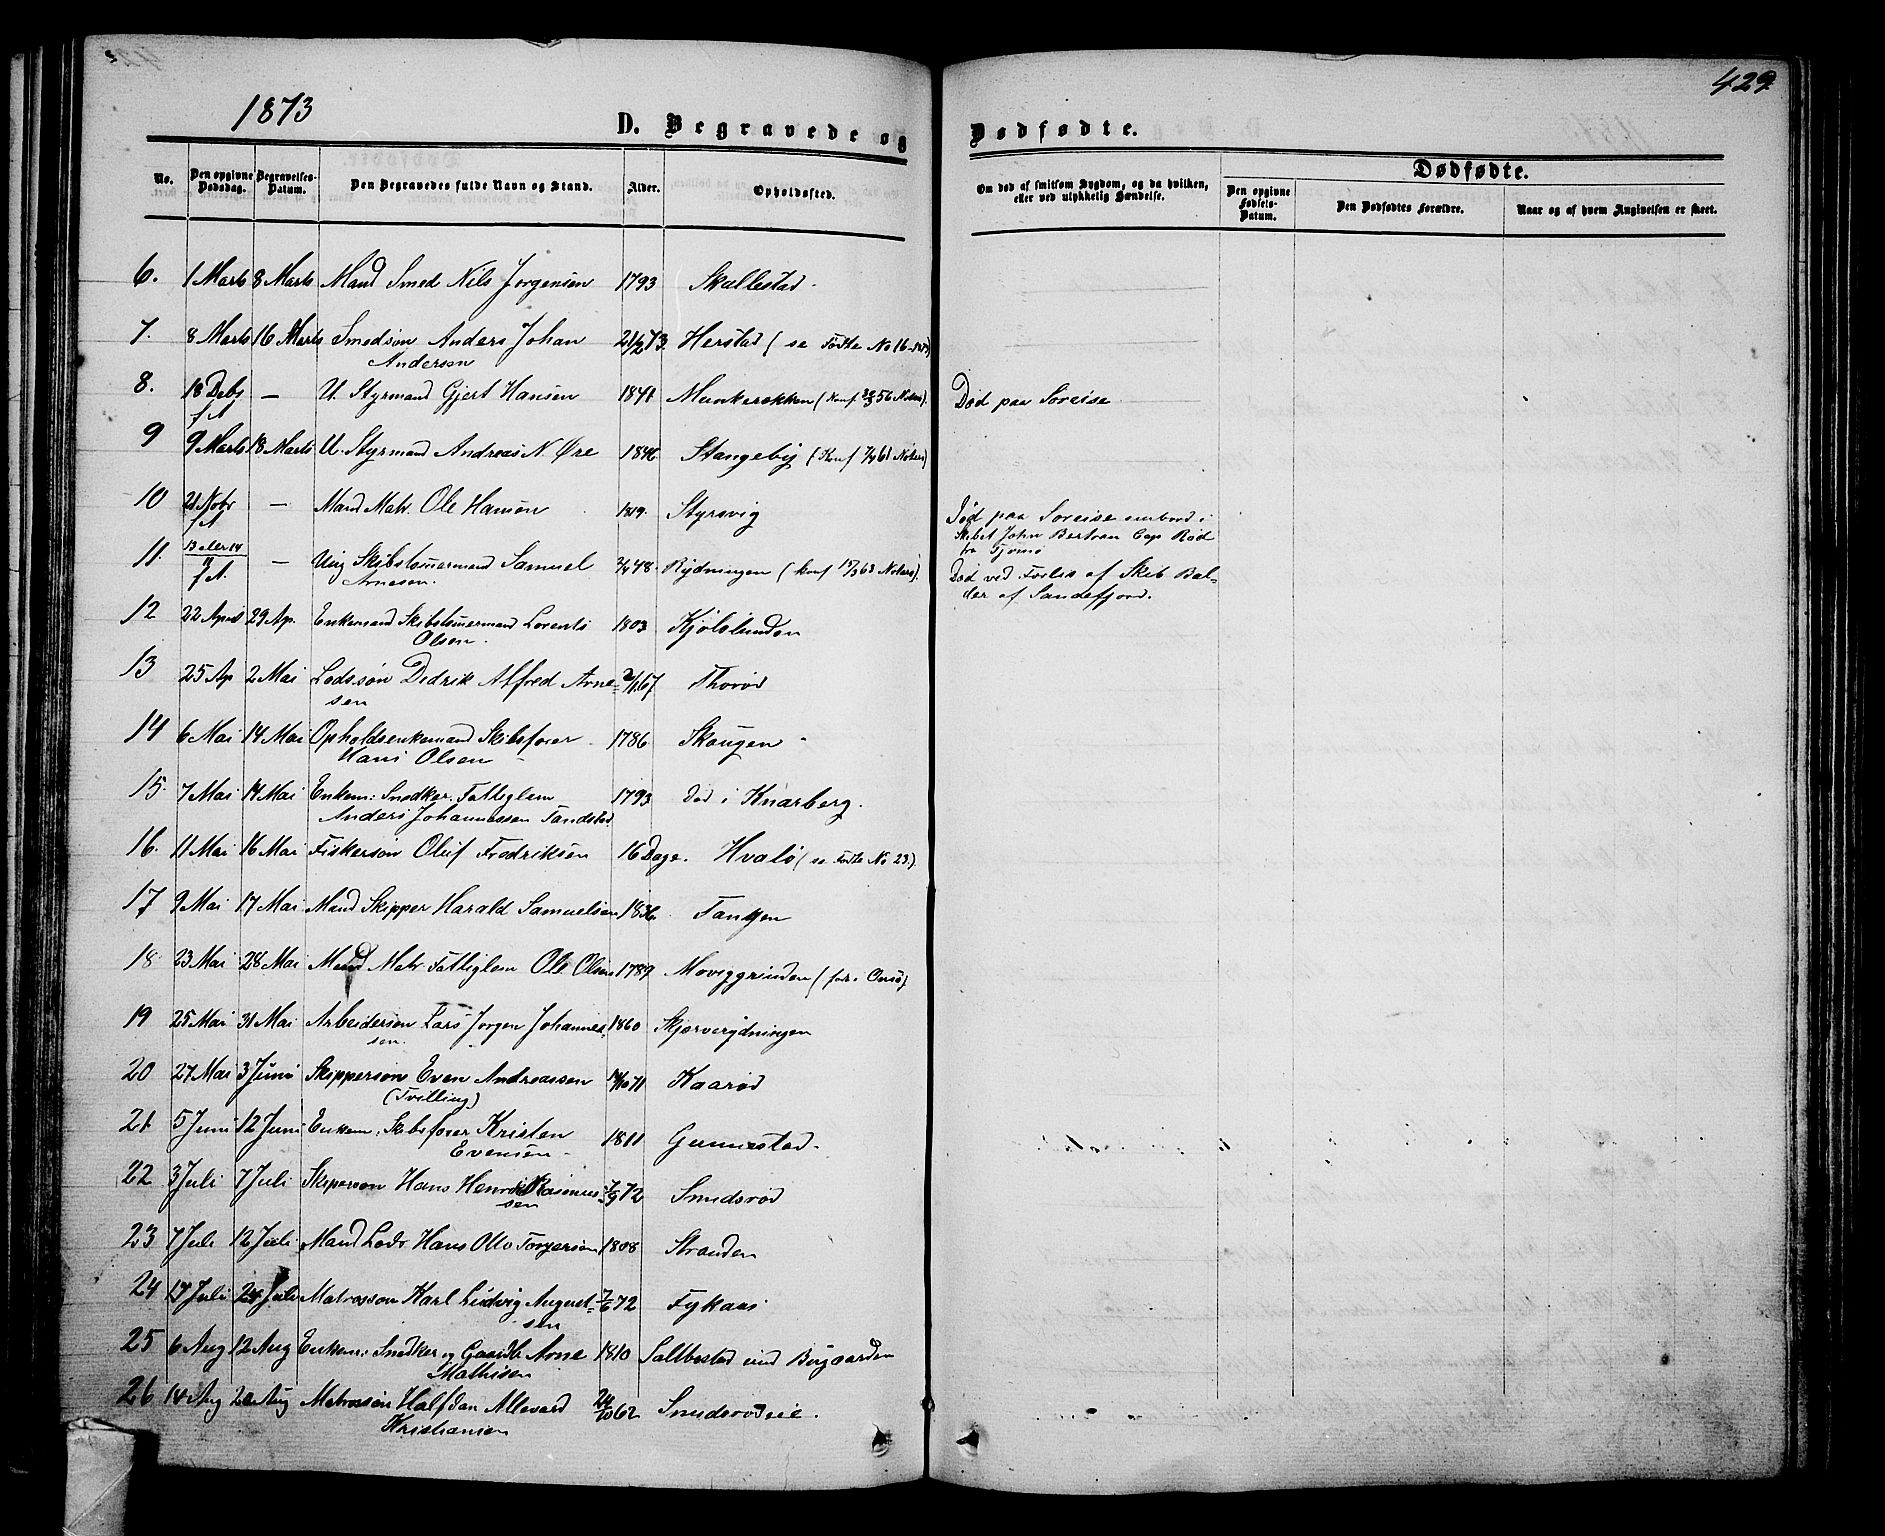 1873
429.
D. Begravede og Dødfødte.
No. Den opgivne Dødsdag. Begravelses-Datum. Den Begravedes fulde Navn og Stand. Alder. Opholdssted. Om død af smitsom Sygdom, og da hvilken, eller ved ulykkelig Hændelse.
Dødfødte.
Den opgivne Fødsels-Datum. Den Dødfødtes Forældre. Naar og af hvem Angivelsen er skeet.
6. 1 Marts 8 Marts Mand Smed Nils Jørgensen 1793 Skallestad.
7. 8 Marts 16 Marts Smedsøn Anders Johan 21/2 73. Herstad (se Fødte No 16
Andersen
8. 18 Debr — U. Styrmand Gjert Hansen 1841 Munkerekken (Konf 56 Notero). Død paa Søreise
f A
9 9 Marts 18 Marts U. Styrmand Andreas N. Øre 1846 Stangeby (Konf 7/4 61 Notero)
10 21 Nobr — Mand Matr. Ole Hansen 1819. Styrsvig Død paa Søreise ombord i
f A Skibet John Bertran Cap Rød
fra Tjømø
11. 13 eller 14 — Ung Skibstømermand Samuel 48. Rydningen (konf 63 Notero). Død ved Forlis af Skib Bal-
f A. Arnesen. der af Sandefjord.
12 22 April 29 Ap. Enkemand Skibstømermand Lorents 1803 Kjølslunden
Olsen.
13 25 Ap 2 Mai Lodssøn Didrik Alfred Arne= 67 Thorød
sen
14 6 Mai 14 Mai Opholdsenkemand Skibsfører 1786 Skougen
Hans Olsen
15. 7 Mai 14 Mai Enkem: Snedker. Fattiglem 1793 Død i Knarberg.
Anders Johannessen Tandstad
16. 11 Mai 16 Mai Fiskersøn Oluf Fredriksen 16 Dage. Hvalø (se Fødte No 23.)
17 9 Mai 17 Mai Mand Skipper Harald Samuelsen 1836. Tangen
18. 23 Mai 28 Mai Mand Matr Fattiglem Ole Olsen 1789 Moviggrinden (fød i Onsø)
19 25 Mai 31 Mai Arbeidersøn Lars Jørgen Johannes= 1860 Skjerverydningen
sen.
20 27 Mai 3 Juni Skippersøn Even Andreassen 71 Kaarød
(Tvilling)
21. 5 Juni 12 Juni Enkem: Skibsfører Kristen 1811 Gunnestad.
Evensen
22 3 Juli 7 Juli Skipersøn Hans Henrik Rasmus= 7/9 72 Smidsrød
sen
23 7 Juli 12 Juli Mand Lods Hans Otto Torgersen 1808 Stranden
24 17 Juli 24 Juli Matrossøn Karl Ludvig August= 7/6 72 Fykaas
sen
25 6 Aug 12 Aug Enkem: Snedker og Gaardb Arne 1810 Saltbostad und Bergaarden
Mathisen
26 14 Aug 20 Aug Matrossøn Halfdan Allevard 24/10 62 Smidsrødeie.
Kristiansen